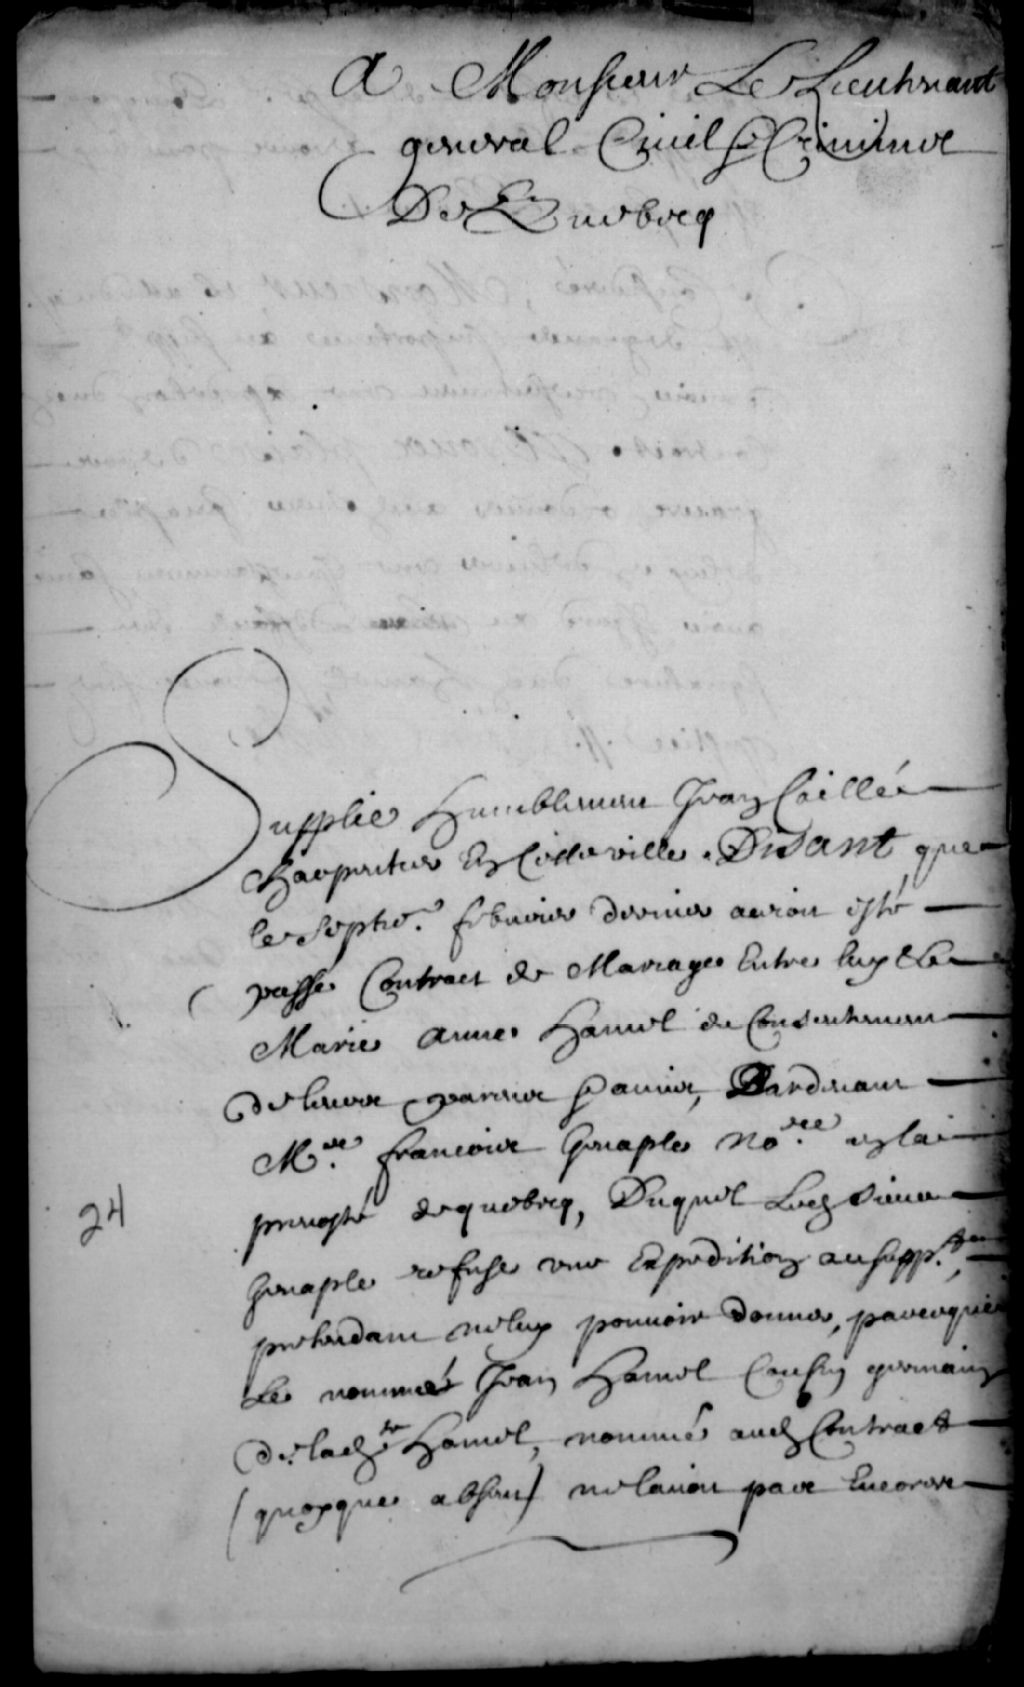 A Monsieur Le Lieutenant
general Civil & Criminel
De Quebecq
Supplie humblement Jean Caillée
Charpentier En Cette ville, Disant que
le Septie.e febvrier dernier auroit esté
passé Contract de Mariage Entre luy & Le
Marie anne hamel du Consentement
de leurs parens & amis, Pardevant
M.re francois Genaple No.re en la
prevosté de quebecq, Duquel Led Sieur
Genaple refuse une Expedition au supp.t,
pretendant ne luy pouvoir donner, parcequ
Le nommé Jean Hamel Cousin germain
24
de lad Hamel, nommé aud Contract
(quoyque absent) ne lauoit pas Encores